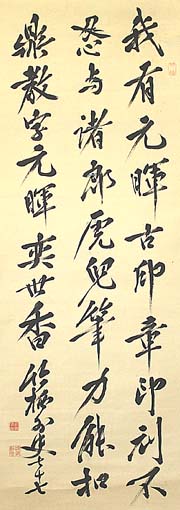 我有元暉古印章印刓不
忍与諸郎虎兒筆力能扛
鼎教字元暉奕世香